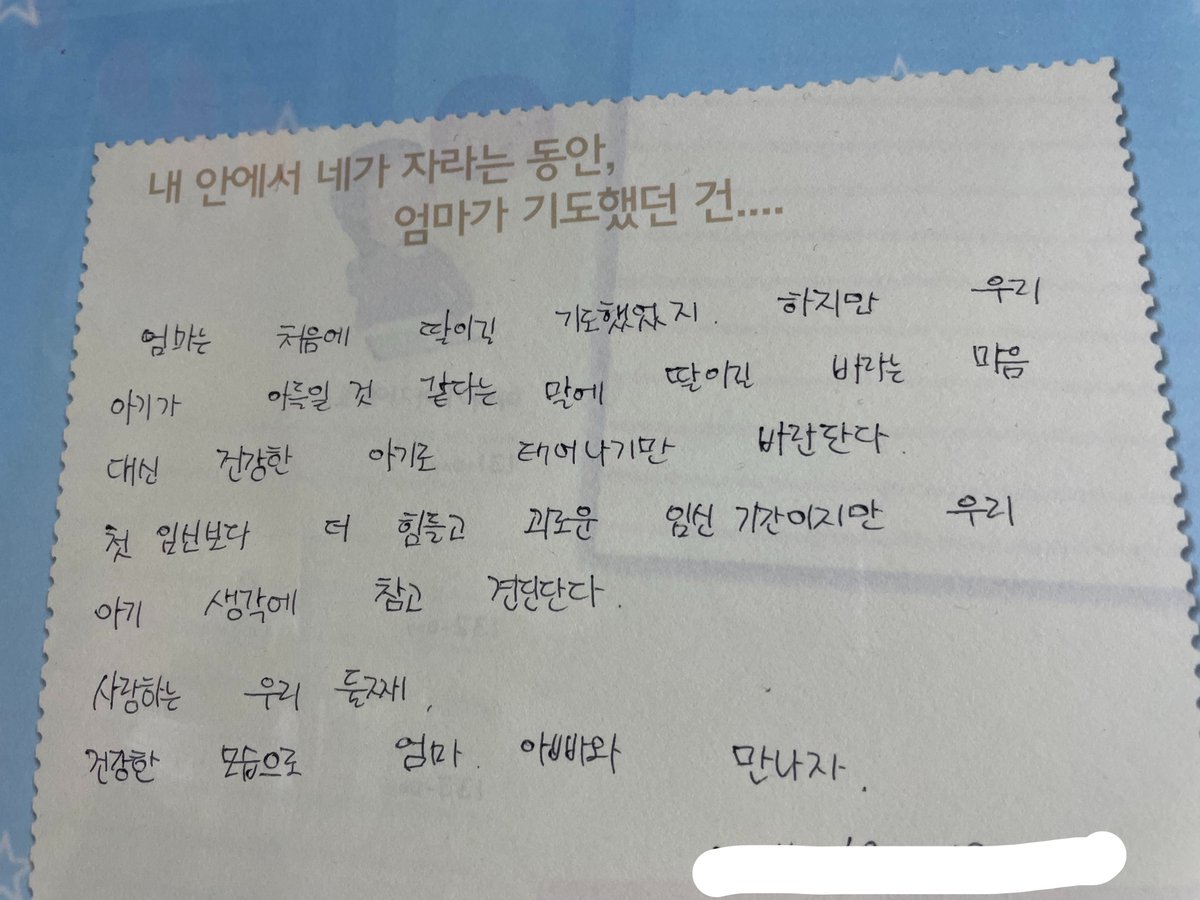 내 안에서 네가 자라는 동안,
엄마가 기도했던 건....
엄마는 처음에 딸이길 기도했었지. 하지만 우리
아기가 아들일 것 같다는 말에 딸이길 바라는 마음
대신 건강한 아기로 태어나기만 바란단다.
첫 임신보다 더 힘들고 괴로운 임신 기간이지만 우리
아기 생각에 참고 견딘단다.
사랑하는 우리 둘째,
건강한 모습으로 엄마. 아빠와 만나자.